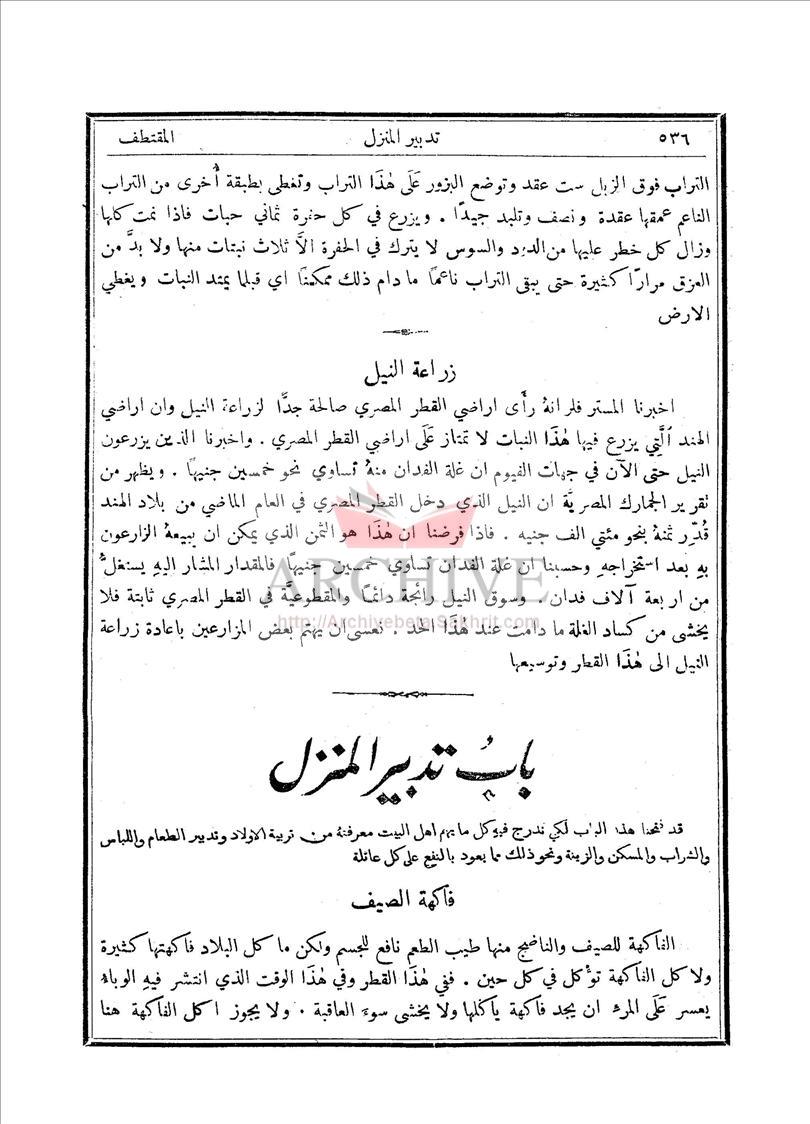 ٥٣٦ تدبير المنزل المقتطف
التراب فوق الزبل ست عقد وتوضع البزور عَلَى هٰذَا التراب وتغطى بطبقة أُخرى من التراب
الناعم عمقها عقدة ونصف وتلبد جيدًا . ويزرع في كل حفرة ثماني حبات فاذا نمت كلها
وزال كل خطر عليها من الدود والسوس لا يترك في الحفرة الَّا ثلاث نبتات منها ولا بدَّ من
العزق مرارًا كثيرة حتى يبقى التراب ناعمًا ما دام ذلك ممكنًا اي قبلما يمتد النبات ويغطي
الارض
زراعة النيل
اخبرنا المستر فلر انهُ رأَى اراضي القطر المصري صالحة جدًّا لزراعة النيل وان اراضي
الهند الَّتِي يزرع فيها هٰذَا النبات لا تمتاز عَلَى اراضي القطر المصري . واخبرنا الذين يزرعون
النيل حتى الآن في جهات الفيوم ان غلة الفدان منهُ تساوي نحو خمسين جنيهًا . ويظهر من
تقرير الجمارك المصريَّة ان النيل الذي دخل القطر المصري في العام الماضي من بلاد الهند
قُدِّر ثمنهُ بنحو مئتي الف جنيه . فاذا فرضنا ان هٰذَا هو الثمن الذي يمكن ان يبيعهُ الزارعون
بهِ بعد استخراجهِ وحسبنا ان غلة الفدان تساوي خمسين جنيهًا فالمقدار المشار اليهِ يستغلُّ
من اربعة آلاف فدان . وسوق النيل رائجة دائمًا والمقطوعيَّة في القطر المصري ثابتة فلا
يخشى من كساد الغلة ما دامت عند هٰذَا الحد . فعسى ان يهتم بعض المزارعين باعادة زراعة
النيل الى هٰذَا القطر وتوسيعها
ARCHIVE
http://Archivebeta.Sakhrit.com
بابُ تدبير المنزل
قد فتحنا هذا الباب لكي ندرج فيهِ كل ما يهم اهل البيت معرفتهُ من تربية الاولاد وتدبير الطعام واللباس
والشراب والمسكن والزينة ونحو ذلك مما يعود بالنفع على كل عائلة
فاكهة الصيف
الفاكهة للصيف والناضج منها طيب الطعم نافع للجسم ولكن ما كل البلاد فاكهتها كثيرة
ولا كل الفاكهة تؤكل في كل حين . ففي هٰذَا القطر وفي هٰذَا الوقت الذي انتشر فيهِ الوباء
يعسر عَلَى المرء ان يجد فاكهة يأكلها ولا يخشى سوء العاقبة . ولا يجوز اكل الفاكهة هنا